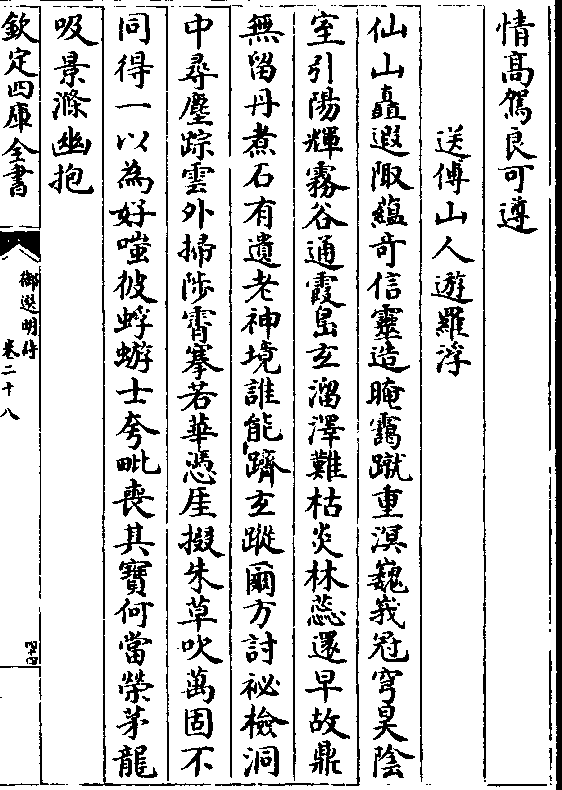 情高駕良可遵
送傅山人遊羅浮
仙山矗遐陬蘊奇信靈造晻靄蹴重溟巍峩冠穹昊陰
室引陽輝霧谷通霞島玄溜澤難枯炎林蕊還早故鼎
無留丹煮石有遺老神境誰能躋玄蹤爾方討祕檢洞
中尋塵踪雲外掃陟霄搴若華憑厓掇朱草吹萬固不
同得一以為好嗤彼蜉蝣士夸毗喪其寶何當榮茅龍
吸景滌幽抱
欽定四庫全書
御選明詩
卷二十八
四十四